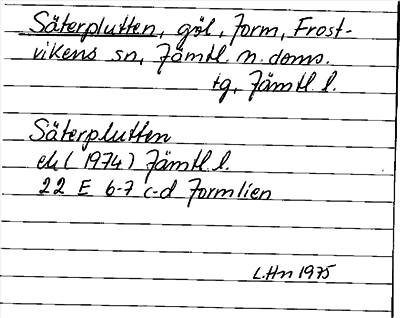 Säterplutten, göl, Form, Frost-
vikens sn, Jämtl. n. doms.
tg, Jämtl l.
Säterplutten
ek (1974) Jämtl. l.
22 E 6-7 c-d Formlien
L.Hn 1975